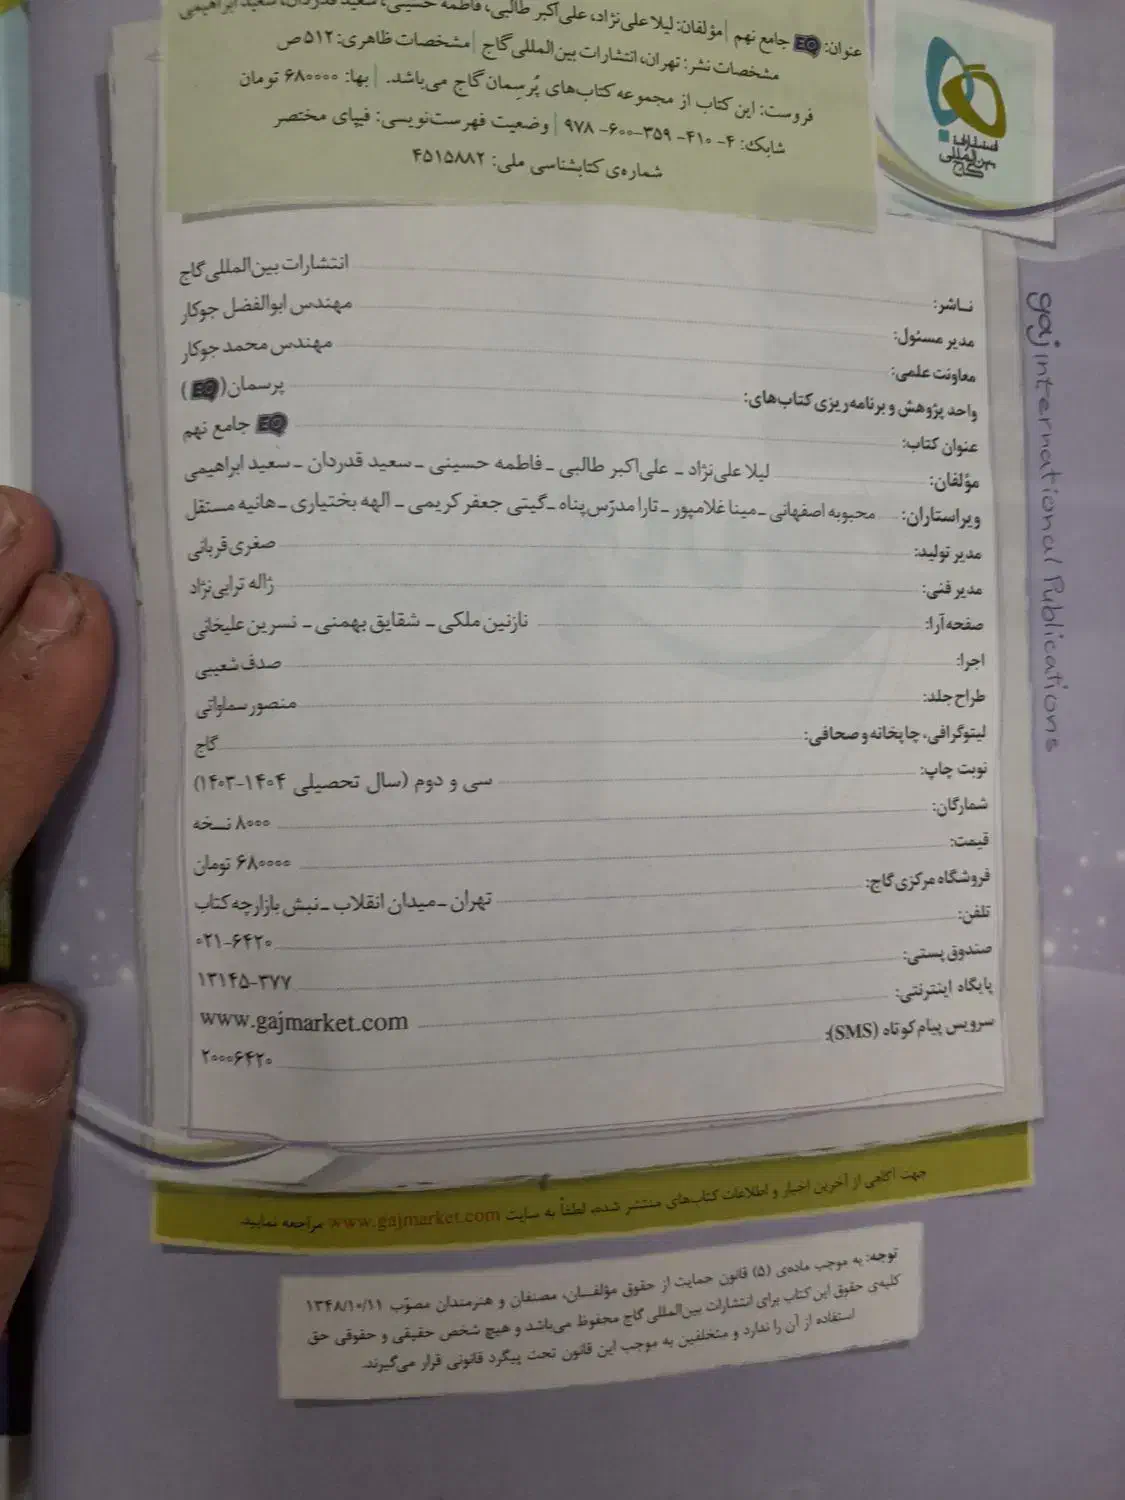 عنوان: EQ جامع نهم | مؤلفان: لیلا علی‌نژاد، علی‌اکبر طالبی، فاطمه حسینی، سعید قدردان، سعید ابراهیمی
مشخصات نشر: تهران، انتشارات بین‌المللی گاج | مشخصات ظاهری: ۵۱۲ ص
فروست: این کتاب از مجموعه کتاب‌های پُرسِمان گاج می‌باشد. | بها: ۶۸۰۰۰۰ تومان
شابک: ۴-۴۱۰-۳۵۹-۶۰۰-۹۷۸ | وضعیت فهرست‌نویسی: فیپای مختصر
شماره‌ی کتابشناسی ملی: ۴۵۱۵۸۸۲
انتشارات بین‌المللی گاج
gaj international Publications
ناشر: انتشارات بین‌المللی گاج
مدیر مسئول: مهندس ابوالفضل جوکار
معاونت علمی: مهندس محمد جوکار
واحد پژوهش و برنامه‌ریزی کتاب‌های: پرسمان (EQ)
عنوان کتاب: EQ جامع نهم
مؤلفان: لیلا علی‌نژاد ـ علی‌اکبر طالبی ـ فاطمه حسینی ـ سعید قدردان ـ سعید ابراهیمی
ویراستاران: محبوبه اصفهانی ـ مینا غلامپور ـ تارا مدرّس‌پناه ـ گیتی جعفر کریمی ـ الهه بختیاری ـ هانیه مستقل
مدیر تولید: صغری قربانی
مدیر فنی: ژاله ترابی‌نژاد
صفحه‌آرا: نازنین ملکی ـ شقایق بهمنی ـ نسرین علیخانی
اجرا: صدف شعیبی
طراح جلد: منصور سماواتی
لیتوگرافی، چاپخانه و صحافی: گاج
نوبت چاپ: سی و دوم (سال تحصیلی ۱۴۰۴-۱۴۰۳)
شمارگان: ۸۰۰۰ نسخه
قیمت: ۶۸۰۰۰۰ تومان
فروشگاه مرکزی گاج: تهران ـ میدان انقلاب ـ نبش بازارچه کتاب
تلفن: ۰۲۱-۶۴۲۰
صندوق پستی: ۱۳۱۴۵-۳۷۷
پایگاه اینترنتی: www.gajmarket.com
سرویس پیام کوتاه (SMS): ۲۰۰۰۶۴۲۰
جهت آگاهی از آخرین اخبار و اطلاعات کتاب‌های منتشر شده، لطفاً به سایت www.gajmarket.com مراجعه نمایید.
توجه: به موجب ماده‌ی (۵) قانون حمایت از حقوق مؤلفان، مصنفان و هنرمندان مصوّب ۱۳۴۸/۱۰/۱۱
کلیه‌ی حقوق این کتاب برای انتشارات بین‌المللی گاج محفوظ می‌باشد و هیچ شخص حقیقی و حقوقی حق
استفاده از آن را ندارد و متخلفین به موجب این قانون تحت پیگرد قانونی قرار می‌گیرند.